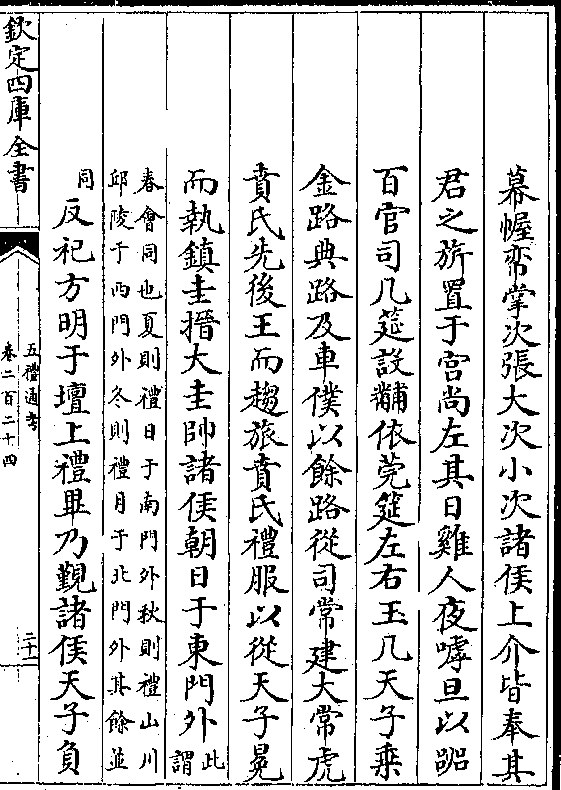 幕幄帟掌次張大次小次諸侯上介皆奉其
君之旂置于宫尚左其日雞人夜嘑旦以嘂
百官司几筵設黼依莞筵左右玉几天子乗
金路典路及車僕以餘路從司常建大常虎
賁氏先後王而趨旅賁氏禮服以從天子冕
而執鎮圭搢大圭帥諸侯朝日于東門外此謂
春會同也夏則禮日于南門外秋則禮山川
邱陵于西門外冬則禮月于北門外其餘並
同反祀方明于壇上禮畢乃覲諸侯天子負
欽定四庫全書
五禮通考
卷二百二十四
二十二